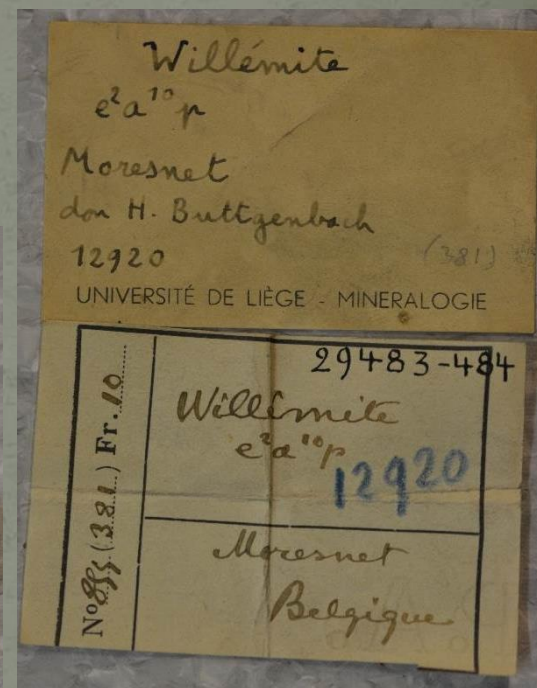 Willémite
e²a¹⁰p
Moresnet
don H. Buttgenbach
12920 (381)
UNIVERSITÉ DE LIÈGE - MINERALOGIE
29483-484
Willémite
e²a¹⁰p
12920
Moresnet
Belgique
Nº (381) Fr. 10